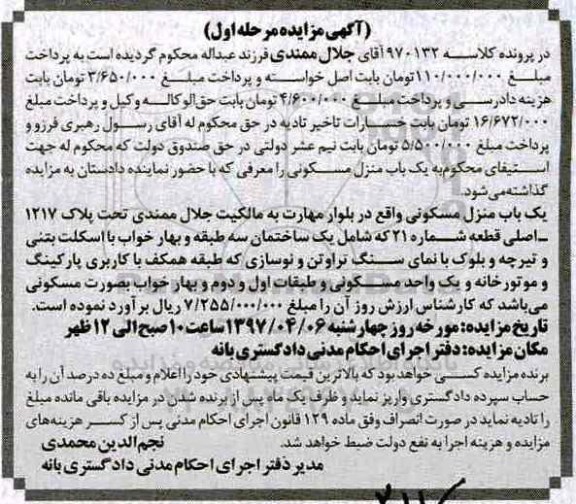 (آگهی مزایده مرحله اول)
در پرونده کلاسه ۹۷۰۱۳۲ آقای جلال ممندی فرزند عبداله محکوم گردیده است به پرداخت
مبلغ ۱۱۰/۰۰۰/۰۰۰ تومان بابت اصل خواسته و پرداخت مبلغ ۳/۶۵۰/۰۰۰ تومان بابت
هزینه دادرسی و پرداخت مبلغ ۴/۶۰۰/۰۰۰ تومان بابت حق الوکاله وکیل و پرداخت مبلغ
۱۶/۶۷۲/۰۰۰ تومان بابت خسارات تاخیر تادیه در حق محکوم له آقای رسول رهبری فرزو و
پرداخت مبلغ ۵/۵۰۰/۰۰۰ تومان بابت نیم عشر دولتی در حق صندوق دولت که محکوم له جهت
استیفای محکوم به یک باب منزل مسکونی را معرفی که با حضور نماینده دادستان به مزایده
گذاشته می شود.
یک باب منزل مسکونی واقع در بلوار مهارت به مالکیت جلال ممندی تحت پلاک ۱۲۱۷
ـ اصلی قطعه شماره ۲۱ که شامل یک ساختمان سه طبقه و بهار خواب با اسکلت بتنی
و تیرچه و بلوک با نمای سنگ تراوتن و نوسازی که طبقه همکف با کاربری پارکینگ
و موتور خانه و یک واحد مسکونی و طبقات اول و دوم و بهار خواب بصورت مسکونی
می باشد که کارشناس ارزش روز آن را مبلغ ۷/۲۵۵/۰۰۰/۰۰۰ ریال برآورد نموده است.
تاریخ مزایده: مورخه روز چهارشنبه ۱۳۹۷/۰۴/۰۶ ساعت ۱۰ صبح الی ۱۲ ظهر
مکان مزایده: دفتر اجرای احکام مدنی دادگستری بانه
برنده مزایده کسی خواهد بود که بالاترین قیمت پیشنهادی خود را اعلام و مبلغ ده درصد آن را به
حساب سپرده دادگستری واریز نماید و ظرف یک ماه پس از برنده شدن در مزایده باقی مانده مبلغ
را تادیه نماید در صورت انصراف وفق ماده ۱۲۹ قانون اجرای احکام مدنی پس از کسر هزینه های
مزایده و هزینه اجرا به نفع دولت ضبط خواهد شد.
نجم الدین محمدی
مدیر دفتر اجرای احکام مدنی دادگستری بانه